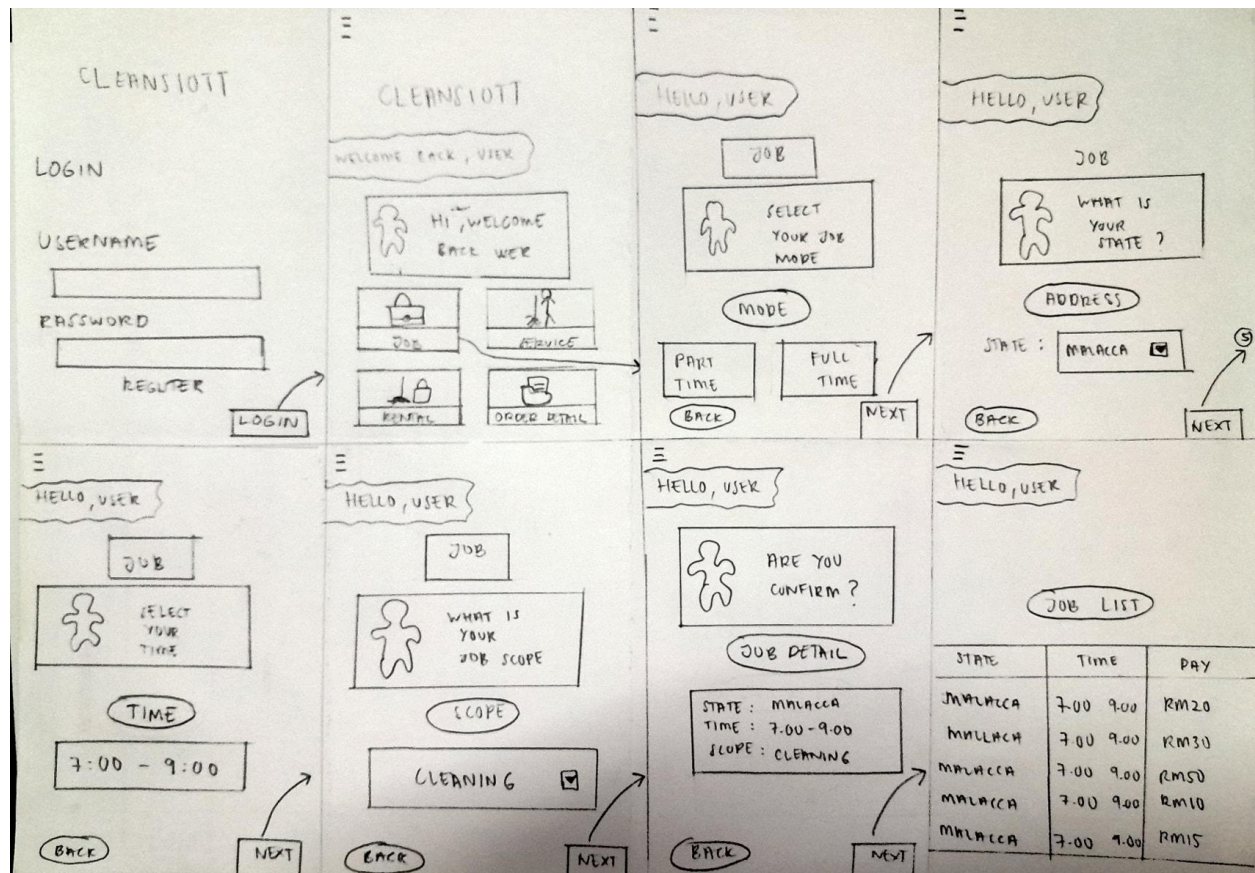 CLEANSIOTT
LOGIN
USERNAME
PASSWORD
REGISTER
LOGIN
CLEANSIOTT
WELCOME BACK, USER
HI, WELCOME
BACK USER
JOB
SERVICE
RENTAL
ORDER DETAIL
HELLO, USER
JOB
SELECT
YOUR JOB
MODE
MODE
PART
TIME
FULL
TIME
BACK
NEXT
HELLO, USER
JOB
WHAT IS
YOUR
STATE ?
ADDRESS
STATE : MALACCA
5
BACK
NEXT
HELLO, USER
JOB
SELECT
YOUR
TIME
TIME
7:00 - 9:00
BACK
NEXT
HELLO, USER
JOB
WHAT IS
YOUR
JOB SCOPE
SCOPE
CLEANING
BACK
NEXT
HELLO, USER
ARE YOU
CONFIRM ?
JOB DETAIL
STATE : MALACCA
TIME : 7.00 - 9.00
SCOPE : CLEANING
BACK
NEXT
HELLO, USER
JOB LIST
STATE TIME PAY
MALACCA 7.00 9.00 RM20
MALLACA 7.00 9.00 RM30
MALACCA 7.00 9.00 RM50
MALACCA 7.00 9.00 RM10
MALACCA 7.00 9.00 RM15